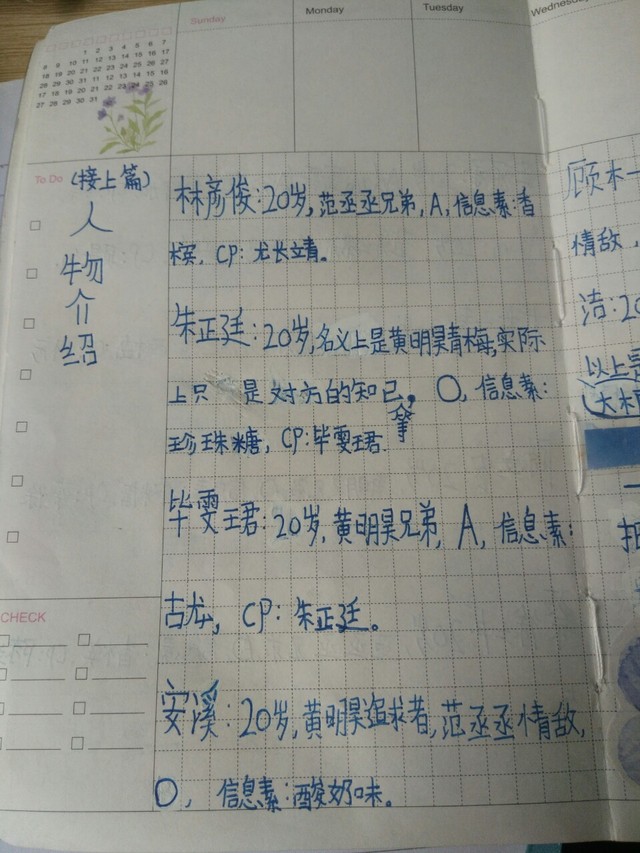 Sunday
Monday
Tuesday
Wednesday
1 2 3 4 5 6 7
8 9 10 11 12 13 14 15 16 17
To Do (接上篇)
人
物
介
绍
林彦俊:20岁,范丞丞兄弟,A,信息素:香
槟,CP:尤长靖。
朱正廷:20岁,名义上是黄明昊青梅,实际
上只是对方的知己,O,信息素:
挚
珍珠糖,CP:毕雯珺.
毕雯珺:20岁,黄明昊兄弟,A,信息素:
古龙,CP:朱正廷。
安溪:20岁,黄明昊追求者,范丞丞情敌,
O,信息素:酸奶味。
CHECK
顾木一
情敌,
洁:20
以上是